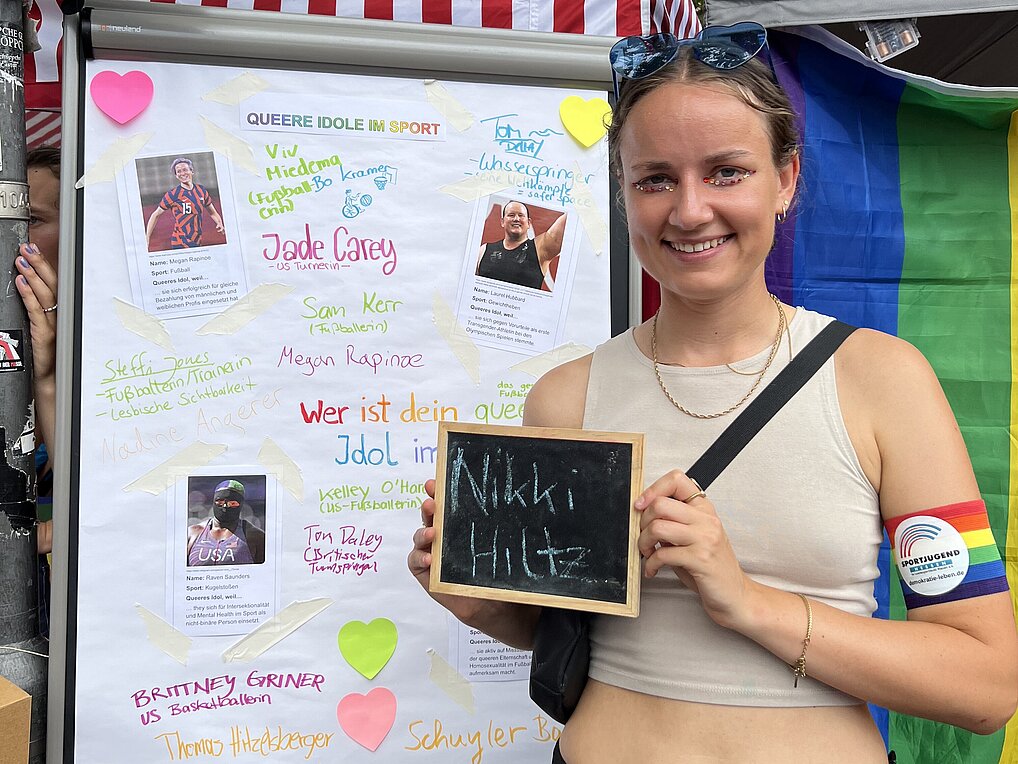 neuland
QUEERE IDOLE IM SPORT
Viv
Miedema
(Fußball-
Bo Kramer
Tom
Daley
-Wasserspringer
= safer space
15
Name: Megan Rapinoe
Sport: Fußball
Queeres Idol, weil...
... sie sich erfolgreich für gleiche
Bezahlung von männlichen und
weiblichen Profis eingesetzt hat
Jade Carey
-US Turnerin-
Name: Laurel Hubbard
Sport: Gewichtheben
Queeres Idol, weil...
... sie sich gegen Vorurteile als erste
Transgender-Athletin bei den
Olympischen Spielen stemmte.
Sam Kerr
(Fußballerin)
Megan Rapinoe
Steffi Jones
-Fußballerin/Trainerin
-Lesbische Sichtbarkeit
Nadine Angerer
Wer ist dein quee
Idol im
Kelley O'Hara
(US-Fußballerin)
Tom Daley
(Britischer
Turmspringer)
USA
Name: Raven Saunders
Sport: Kugelstoßen
Queeres Idol, weil...
... they sich für Intersektionalität
und Mental Health im Sport als
nicht-binäre Person einsetzt.
Queeres Idol, weil...
... sie aktiv auf
der queeren Elternschaft
Homosexualität im Fußball
aufmerksam macht.
BRITTNEY GRINER
US Basketballerin
Thomas Hitzelsberger
Schuyler
Nikki
Hiltz
SPORTJUGEND
HESSEN
demokratie-leben.de